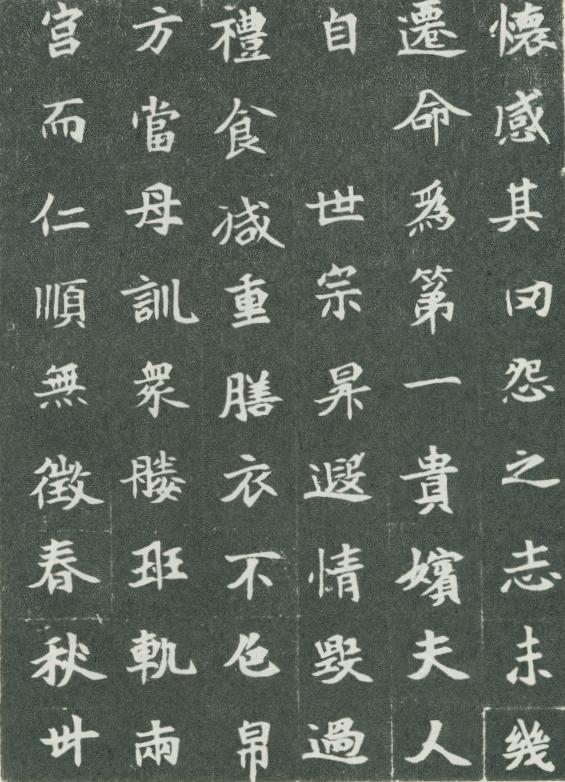 懷感其罔怨之志未幾
遷命爲第一貴嬪夫人
自 世宗昇遐情毀過
禮食減重膳衣不色帛
方當母訓衆媵班軌兩
宮而仁順無徵春秋卅